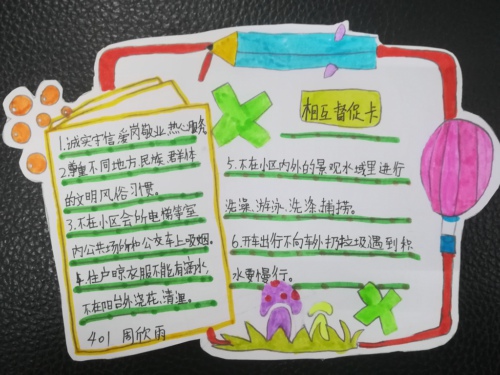 相互督促卡
1.诚实守信,爱岗敬业,热心服务
2.尊重不同地方,民族,群体
的文明风俗习惯。
3.不在小区会的电梯等室
内公共场所和公交车上吸烟。
4.住户晾衣服不能有滴水,
不在阳台外浇花,清
401 周欣雨
5.不在小区内外的景观水域里进行
洗澡、游泳、洗涤、捕捞。
6.开车出行不向车外扔垃圾,遇到积
水要慢行。